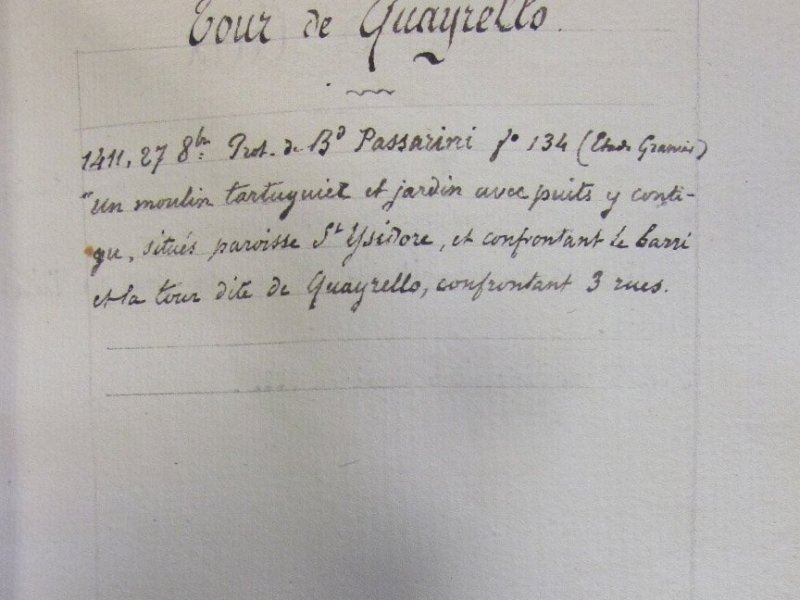 Tour de Quayrello.
1411, 27 8bre Prot. de Bd Passarini fo 134 (Etude Gramis)
"un moulin tartuguier et jardin avec puits y conti-
gu, situés paroisse St Ysidore, et confrontant le barri
et la tour dite de Quayrello, confrontant 3 rues.